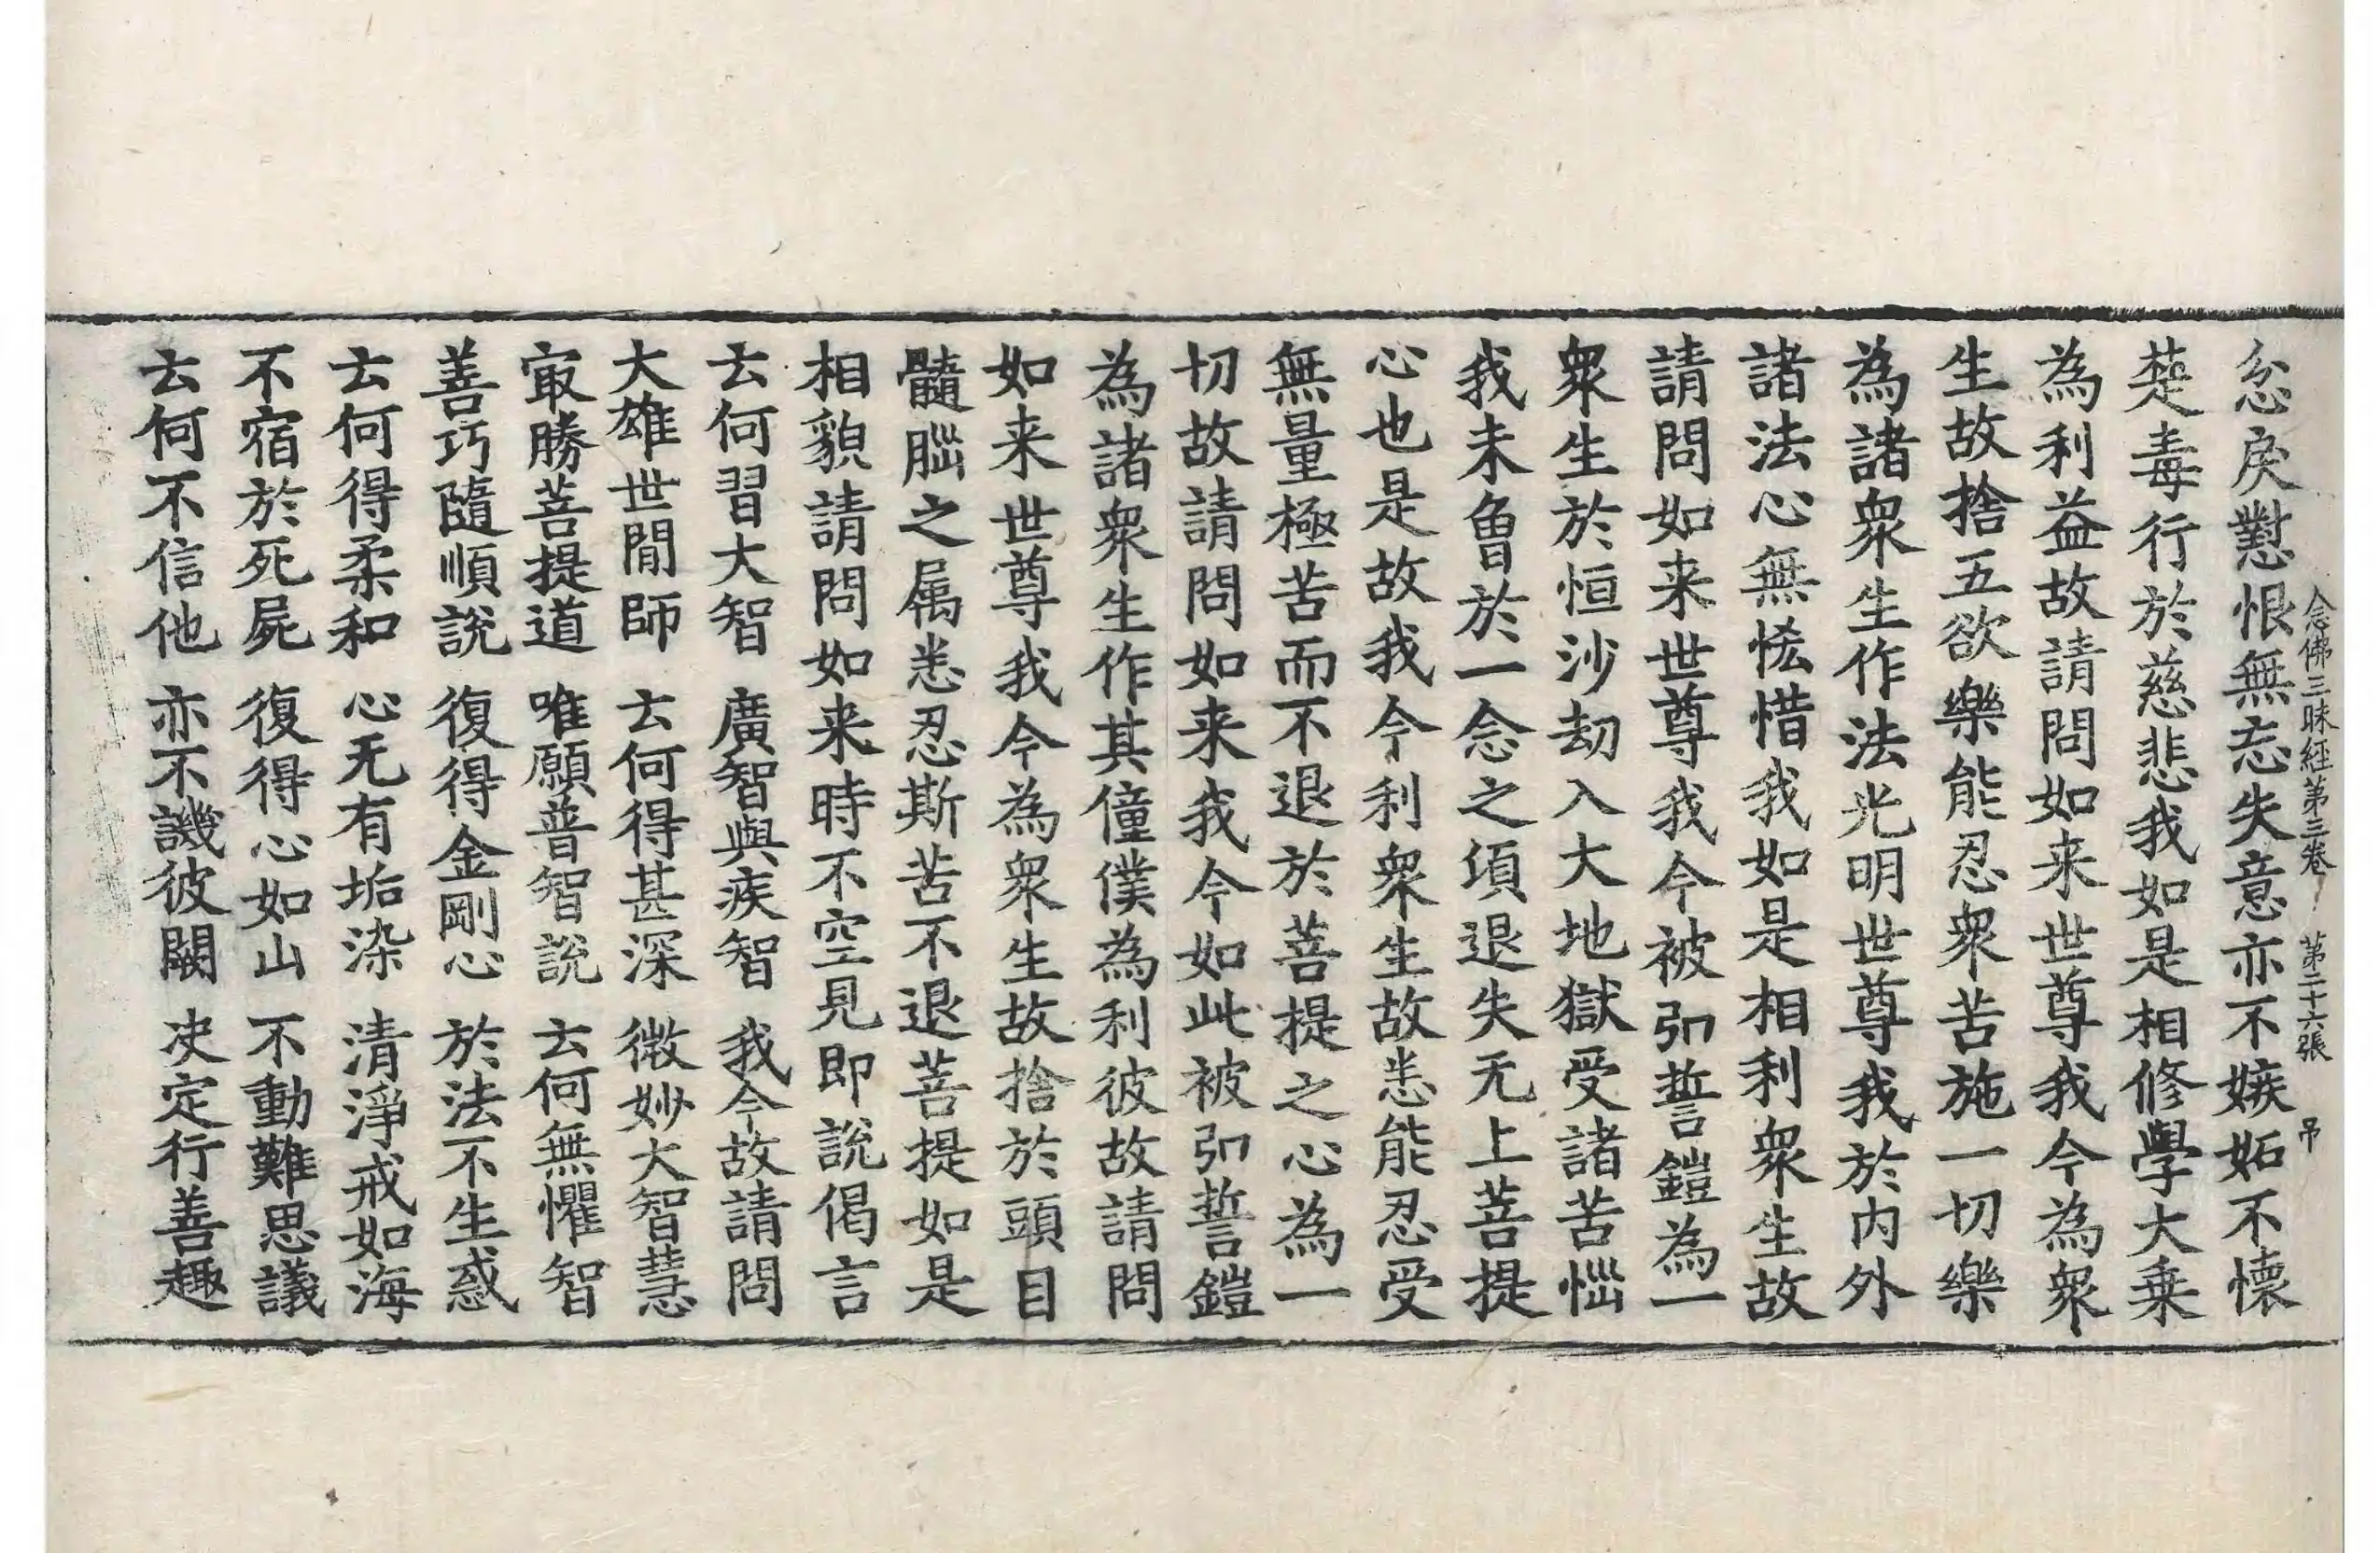 忿戾懟恨無忘失意亦不嫉妬不懷
念佛三昧經第三卷 第二十六張 弔
楚毒行於慈悲我如是相修學大乗
為利益故請問如来世尊我今為衆
生故捨五欲樂能忍衆苦施一切樂
為諸衆生作法光明世尊我於内外
諸法心無恡惜我如是相利衆生故
請問如来世尊我今被弘誓鎧為一
衆生於恒沙劫入大地獄受諸苦惱
我未曽於一念之項退失无上菩提
心也是故我今利衆生故悉能忍受
無量極苦而不退於菩提之心為一
切故請問如来我今如此被弘誓鎧
為諸衆生作其僮僕為利彼故請問
如来世尊我今為衆生故捨於頭目
髓腦之属悉忍斯苦不退菩提如是
相貌請問如来時不空見即説偈言
云何習大智 廣智與疾智 我今故請問
大雄世間師 云何得甚深 微妙大智慧
㝡勝菩提道 唯願普智說 云何無懼智
善巧隨順說 復得金剛心 於法不生惑
云何得柔和 心无有垢染 清淨戒如海
不宿於死屍 復得心如山 不動難思議
云何不信他 亦不譏彼闕 决定行善趣